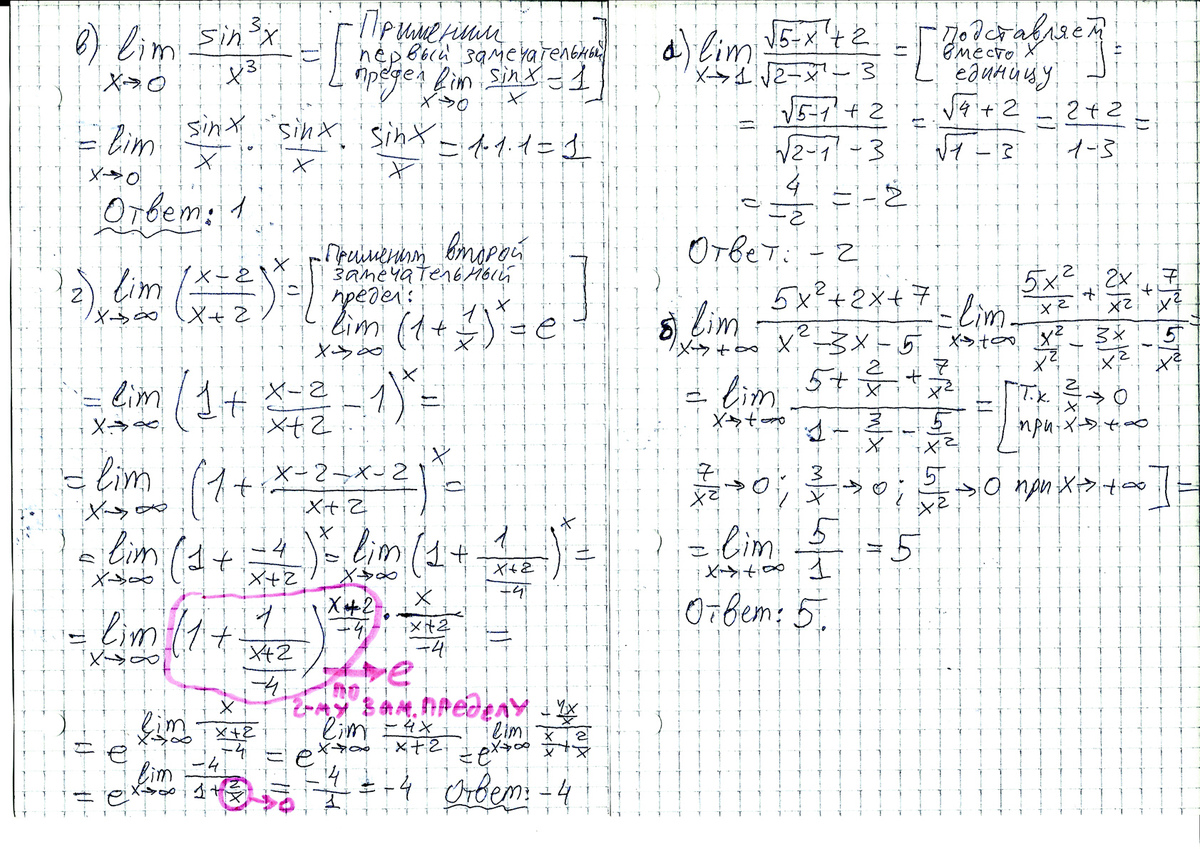 в) lim x→0 sin³x / x³ = [Применим первый замечательный предел lim x→0 sinx / x = 1]
= lim x→0 sinx/x · sinx/x · sinx/x = 1·1·1 = 1
Ответ: 1
г) lim x→∞ ((x-2)/(x+2))^x = [Применим второй замечательный предел: lim x→∞ (1 + 1/x)^x = e]
= lim x→∞ (1 + (x-2)/(x+2) - 1)^x =
= lim x→∞ (1 + (x-2-x-2)/(x+2))^x =
= lim x→∞ (1 + (-4)/(x+2))^x = lim x→∞ (1 + 1/((x+2)/(-4)))^x =
= lim x→∞ (1 + 1/((x+2)/(-4)))^((x+2)/(-4) · x/((x+2)/(-4))) =
→ e
по
2-му зам. пределу
= e^(lim x→∞ x/((x+2)/(-4))) = e^(lim x→∞ (-4x)/(x+2)) = e^(lim x→∞ (-4x/x)/(x/x + 2/x))
= e^(lim x→∞ (-4)/(1 + 2/x)) →0 = -4/1 = -4 Ответ: -4
а) lim x→1 (√(5-x) + 2)/(√(2-x) - 3) = [Подставляем вместо x единицу] =
= (√(5-1) + 2)/(√(2-1) - 3) = (√4 + 2)/(√1 - 3) = (2+2)/(1-3) =
= 4/(-2) = -2
Ответ: -2
б) lim x→+∞ (5x² + 2x + 7)/(x² - 3x - 5) = lim x→+∞ (5x²/x² + 2x/x² + 7/x²)/(x²/x² - 3x/x² - 5/x²) =
= lim x→+∞ (5 + 2/x + 7/x²)/(1 - 3/x - 5/x²) = [Т.к. 2/x → 0 при x→+∞
7/x² → 0; 3/x → 0; 5/x² → 0 при x→+∞] =
= lim x→+∞ 5/1 = 5
Ответ: 5.